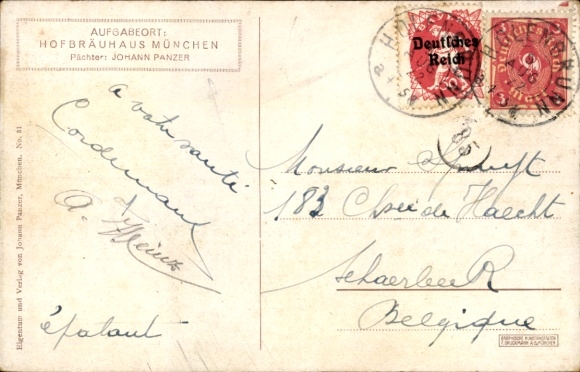 AUFGABEORT:
HOFBRÄUHAUS MÜNCHEN
Pächter: JOHANN PANZER
Deutsches
Reich
a votre santé
Cordement
A.
épatant
Eigentum und Verlag von Johann Panzer, München. No. 81
Monsieur
183 Chsée de Haecht
Schaerbeek
Belgique